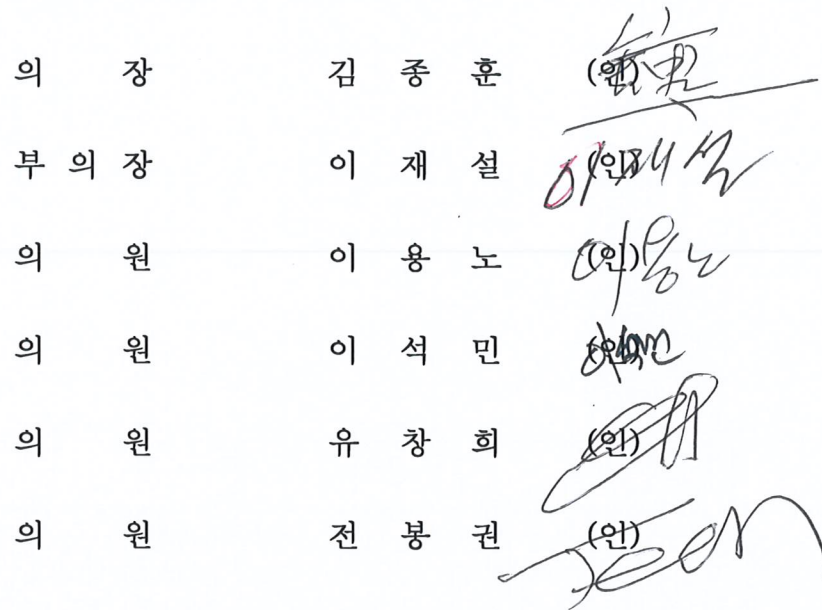 의 장 김 종 훈 (인)
부 의 장 이 재 설 (인) 이재설
의 원 이 용 노 (인) 이용노
의 원 이 석 민 (인) 이석민
의 원 유 창 희 (인)
의 원 전 봉 권 (인) Jeon